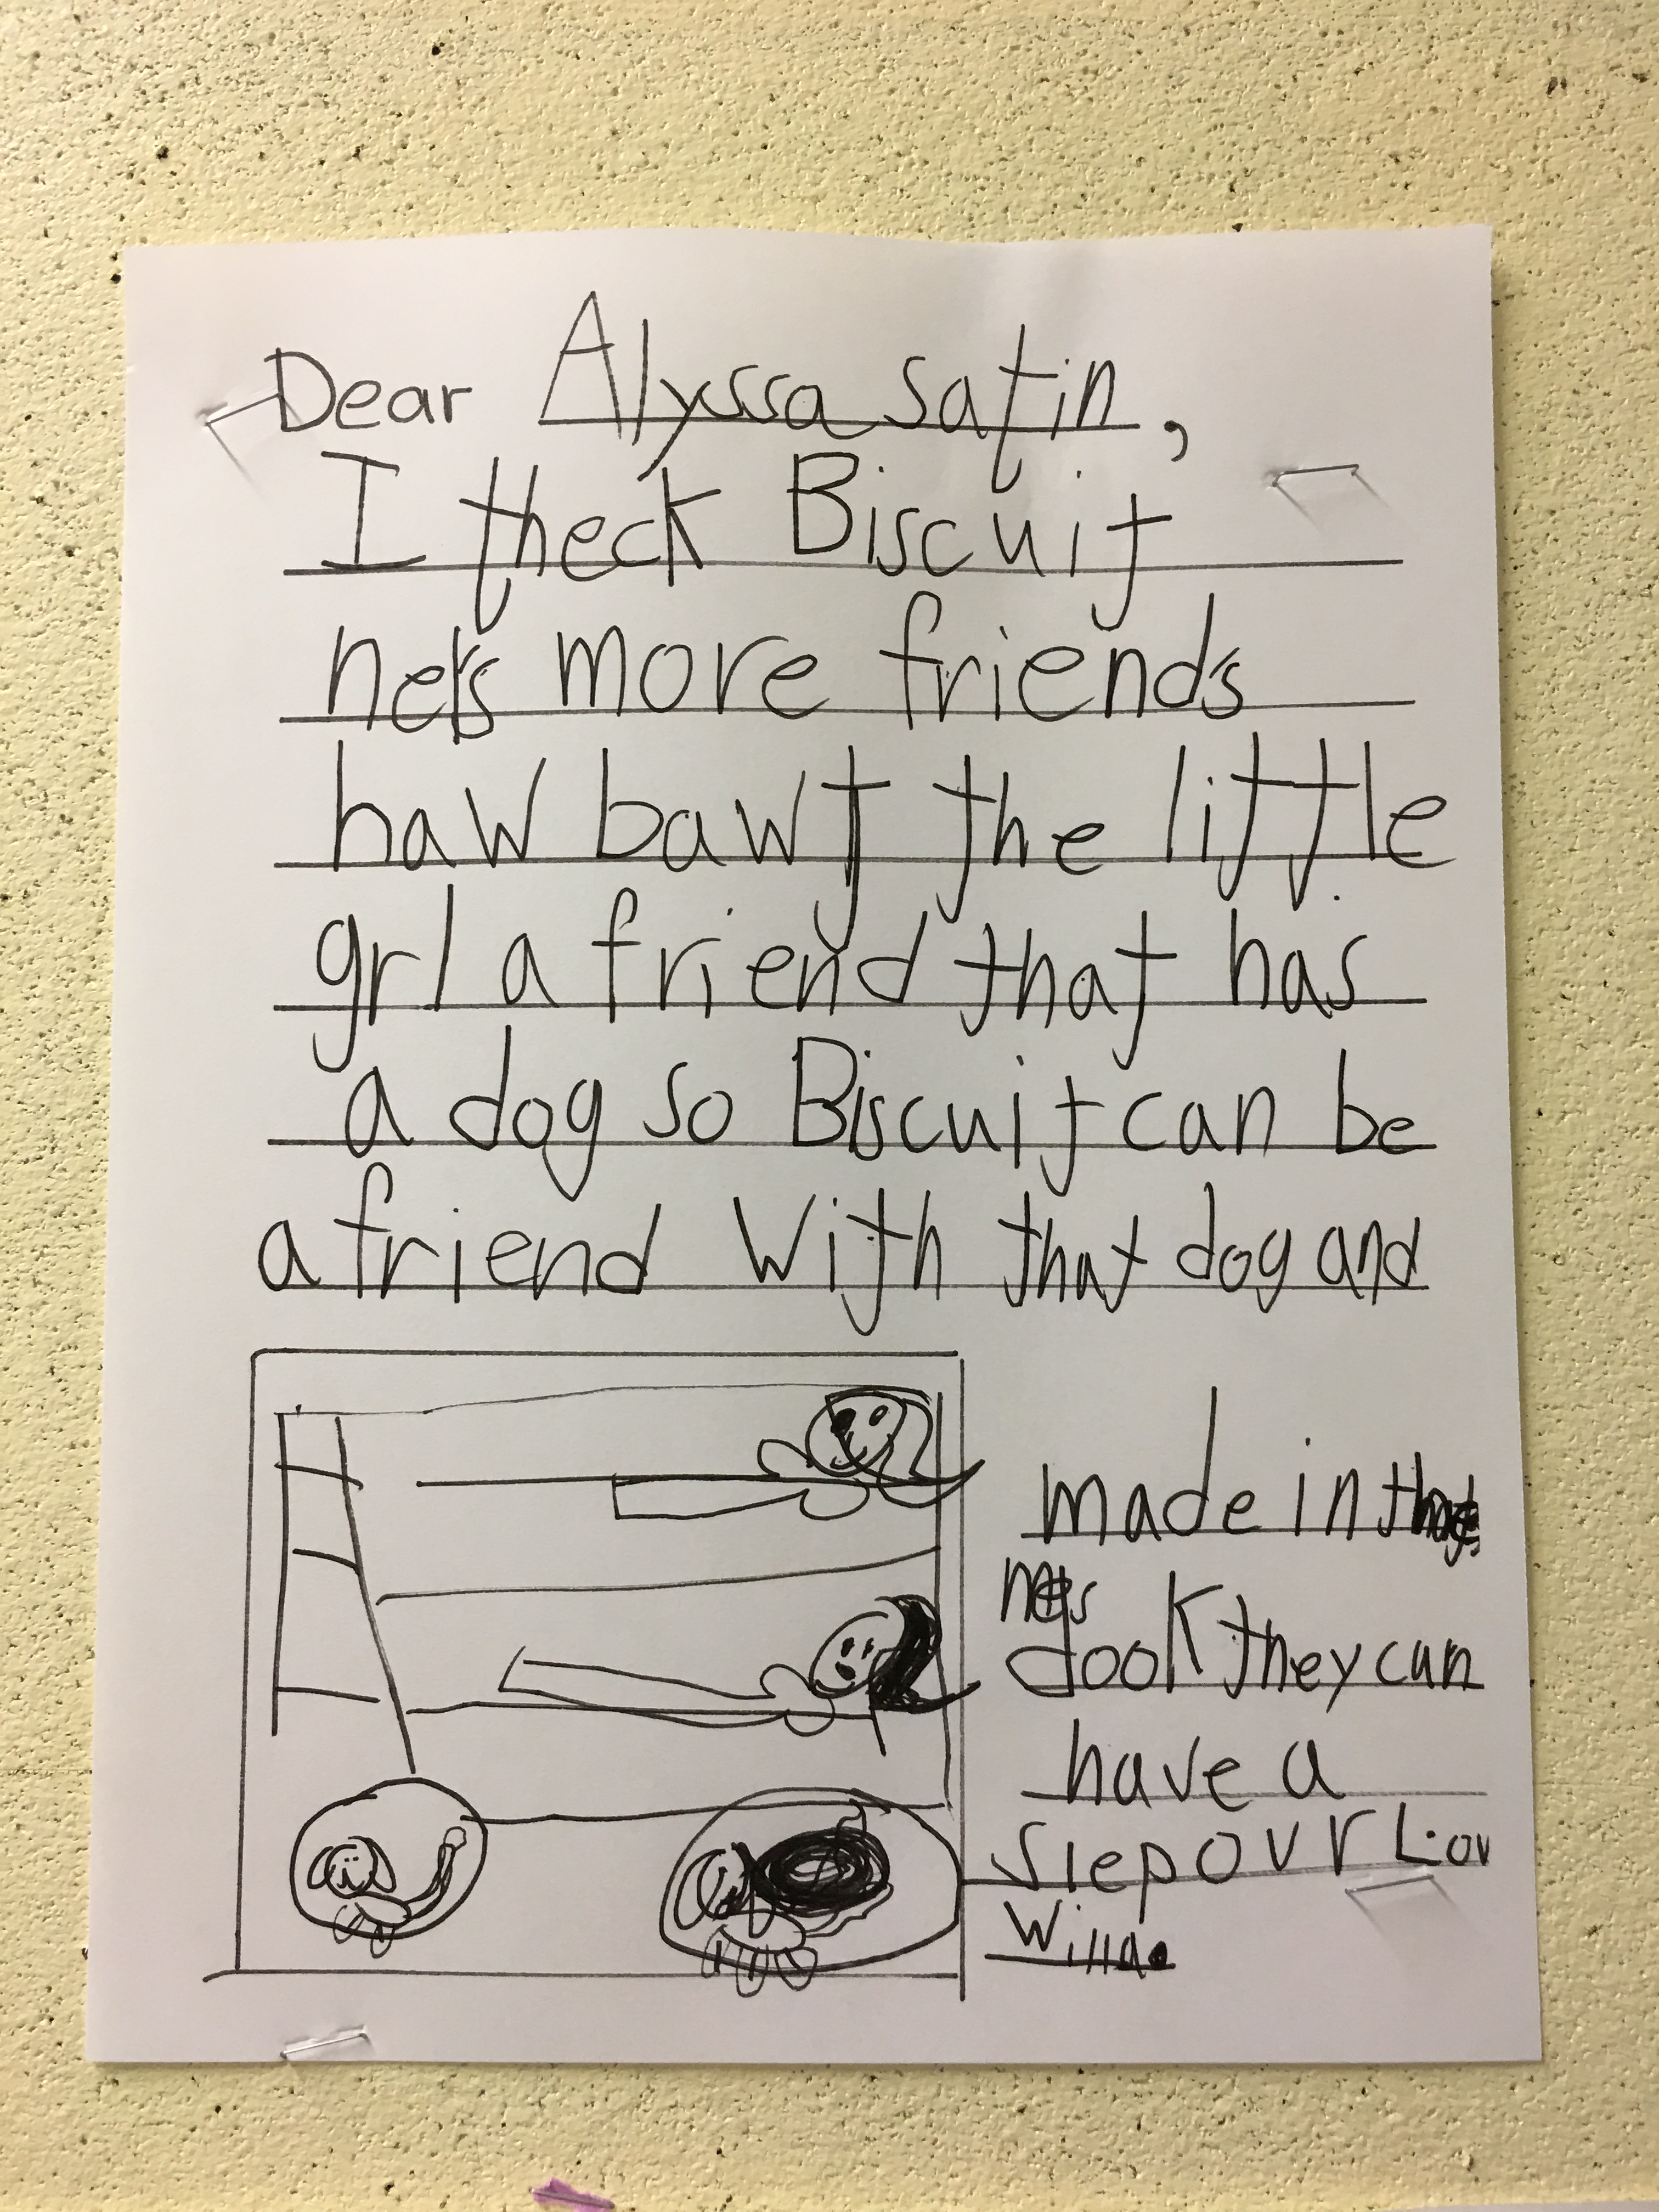 Dear Alyssa satin,
I theck Biscuit
neds more friends
haw bawt the little
grl a friend that has
a dog so Biscuit can be
a friend With that dog and
made in
dook they can
have a
slepovr
Willa